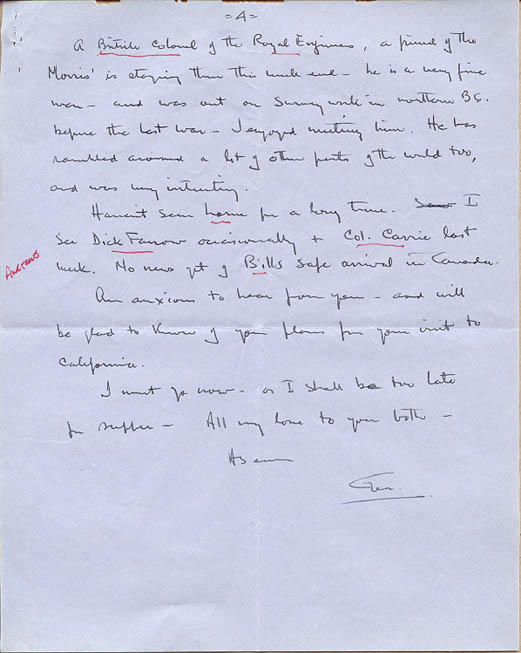 = 4 =
A British Colonel of the Royal Engineers, a friend of the
Morris' is staying there this week end - he is a very fine
man - and was out on survey work in northern B.C.
before the last war - I enjoyed meeting him. He has
rambled around a lot of other parts of the world too,
and was very interesting.
Haven't seen for a long time. I
see Dick Farrow occasionally & Col. Carrie last
Andrews
week. No news yet of Bills safe arrival in Canada.
Am anxious to hear from you - and will
be glad to know of your plans for your visit to
California.
I must go now - or I shall be too late
for supper - All my love to you both -
As ever